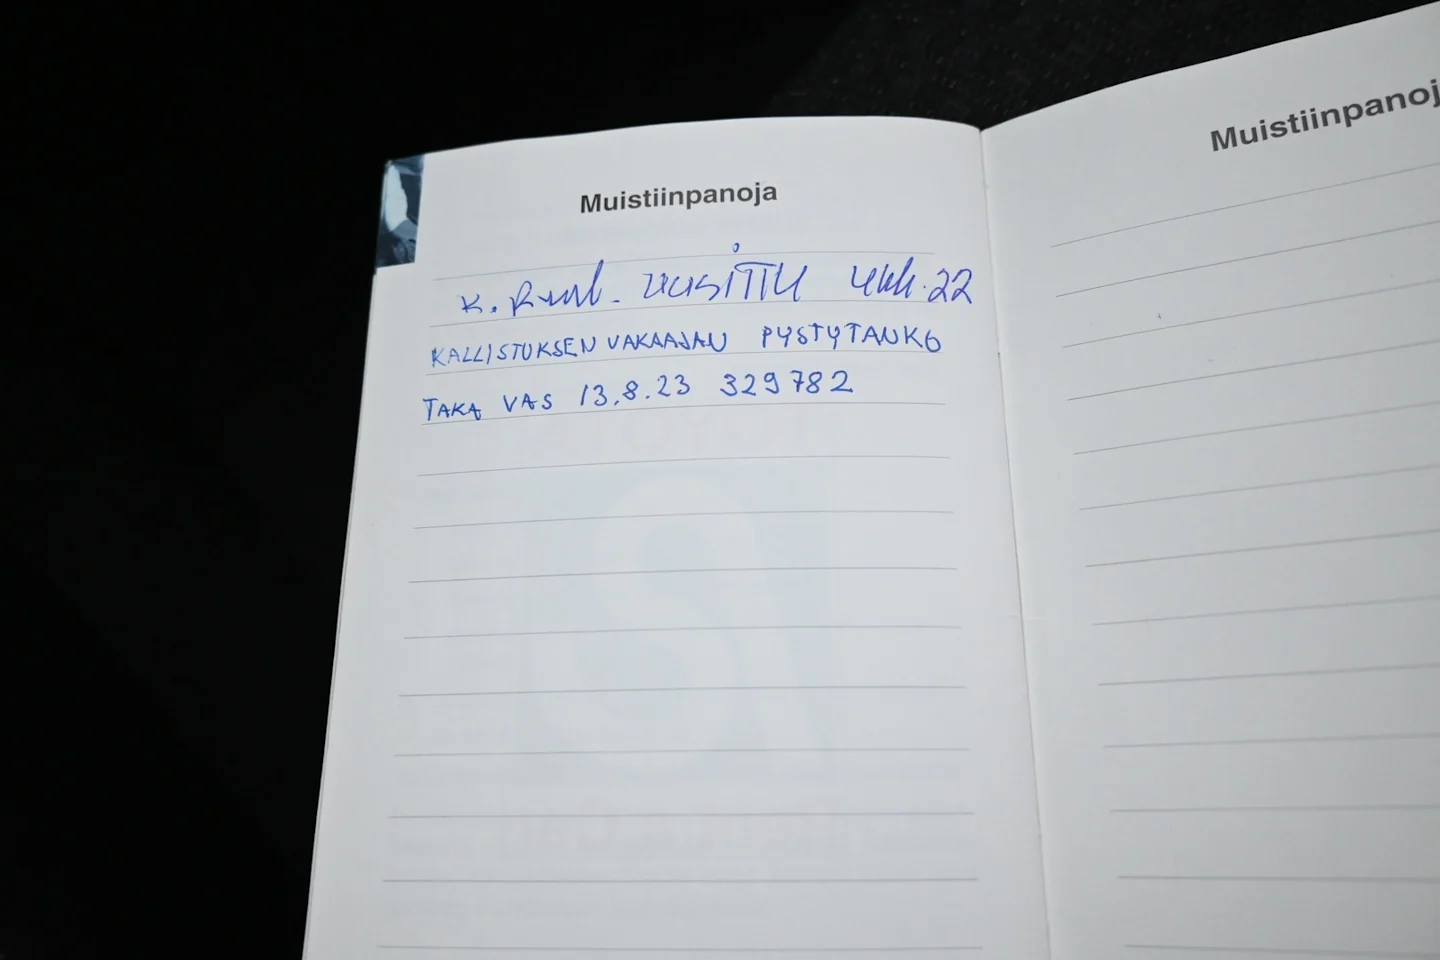 Muistiinpanoja
Muistiinpanoj
K. UUSITTU .22
KALLISTUKSEN VAKAAJAN PYSTYTANKO
TAKA VAS 13.8.23 329782